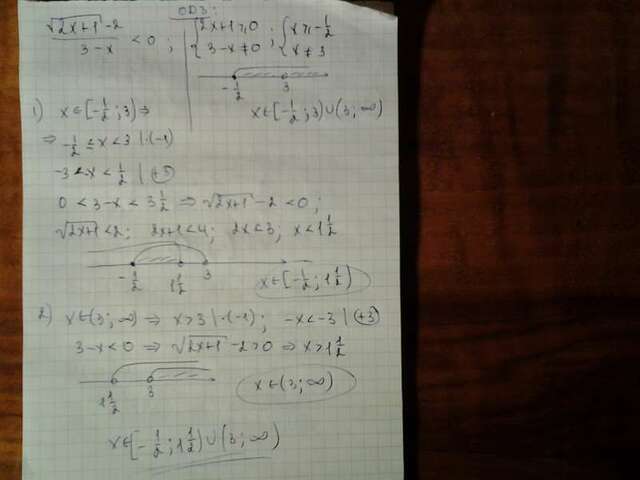 ОДЗ:
(√(2x+1) -2)/(3-x) < 0 ; { 2x+1 ⩾ 0 ; { x ⩾ -1/2
{ 3-x ≠ 0 { x ≠ 3
-1/2 3
1) x∈[-1/2 ; 3) ⇒ x∈[-1/2 ; 3) ∪ (3 ; ∞)
⇒ -1/2 ≤ x < 3 | ·(-1)
-3 < -x < 1/2 | +3
0 < 3-x < 3 1/2 ⇒ √(2x+1) -2 < 0 ;
√(2x+1) < 2 ; 2x+1 < 4 ; 2x < 3 ; x < 1 1/2
-1/2 1 1/2 3
x∈[-1/2 ; 1 1/2)
2) x∈(3 ; ∞) ⇒ x > 3 | ·(-1) ; -x < -3 | +3
3-x < 0 ⇒ √(2x+1) -2 > 0 ⇒ x > 1 1/2
1 1/2 3
x∈(3 ; ∞)
x∈[-1/2 ; 1 1/2) ∪ (3 ; ∞)